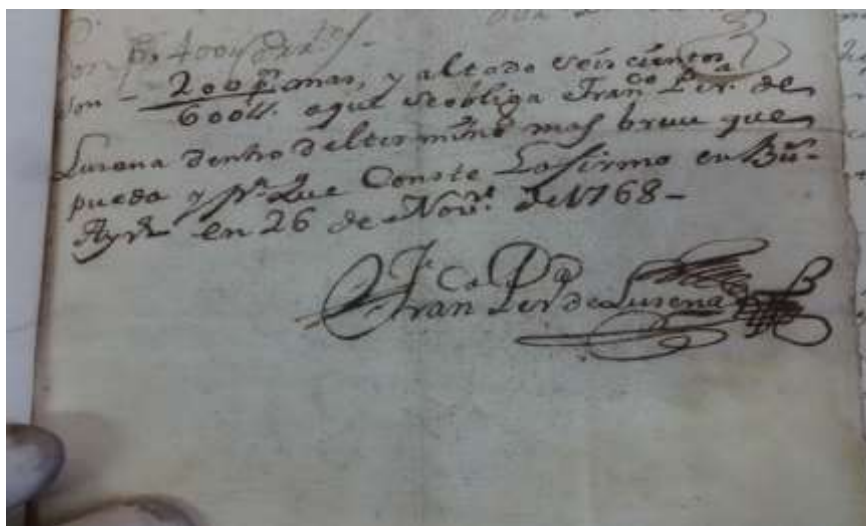 Son p.s 400
Son - 200 p.s mas, y al todo seis cientos
600 aque se obliga Fran.co Per.a de
Lusena dentro del termino mas breue que
pueda y p.a que Conste Lo firmo en Bu.s
Ay.s en 26 de Nov.e de 1768-
Fran.co Per.a de Lusena